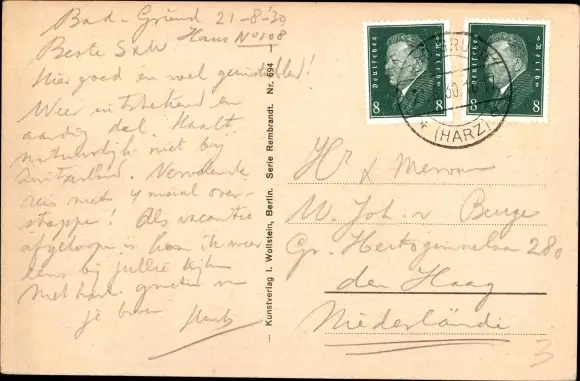 Bad-Grund 21-8-'30
Haus No 108
Beste
Hier goed en wel
Weer uitstekend en
aardig dal. Haalt
natuurlijk niet bij
Zwitzerland. Vervelende
reis met 4 maal over-
stappe! Als vacantie
afgeloope is kom ik weer
eens bij jullie kijken
Met hart. groeten
je
Kunstverlag I. Wollstein, Berlin. Serie Rembrandt. Nr. 694
Deutsches Reich
8 8
Deutsches Reich
8 8
(HARZ)
Hr & Mevrouw
W. Joh. v. Berge
Gr. Hertoginnelaan 280
den Haag
Niederlände
3